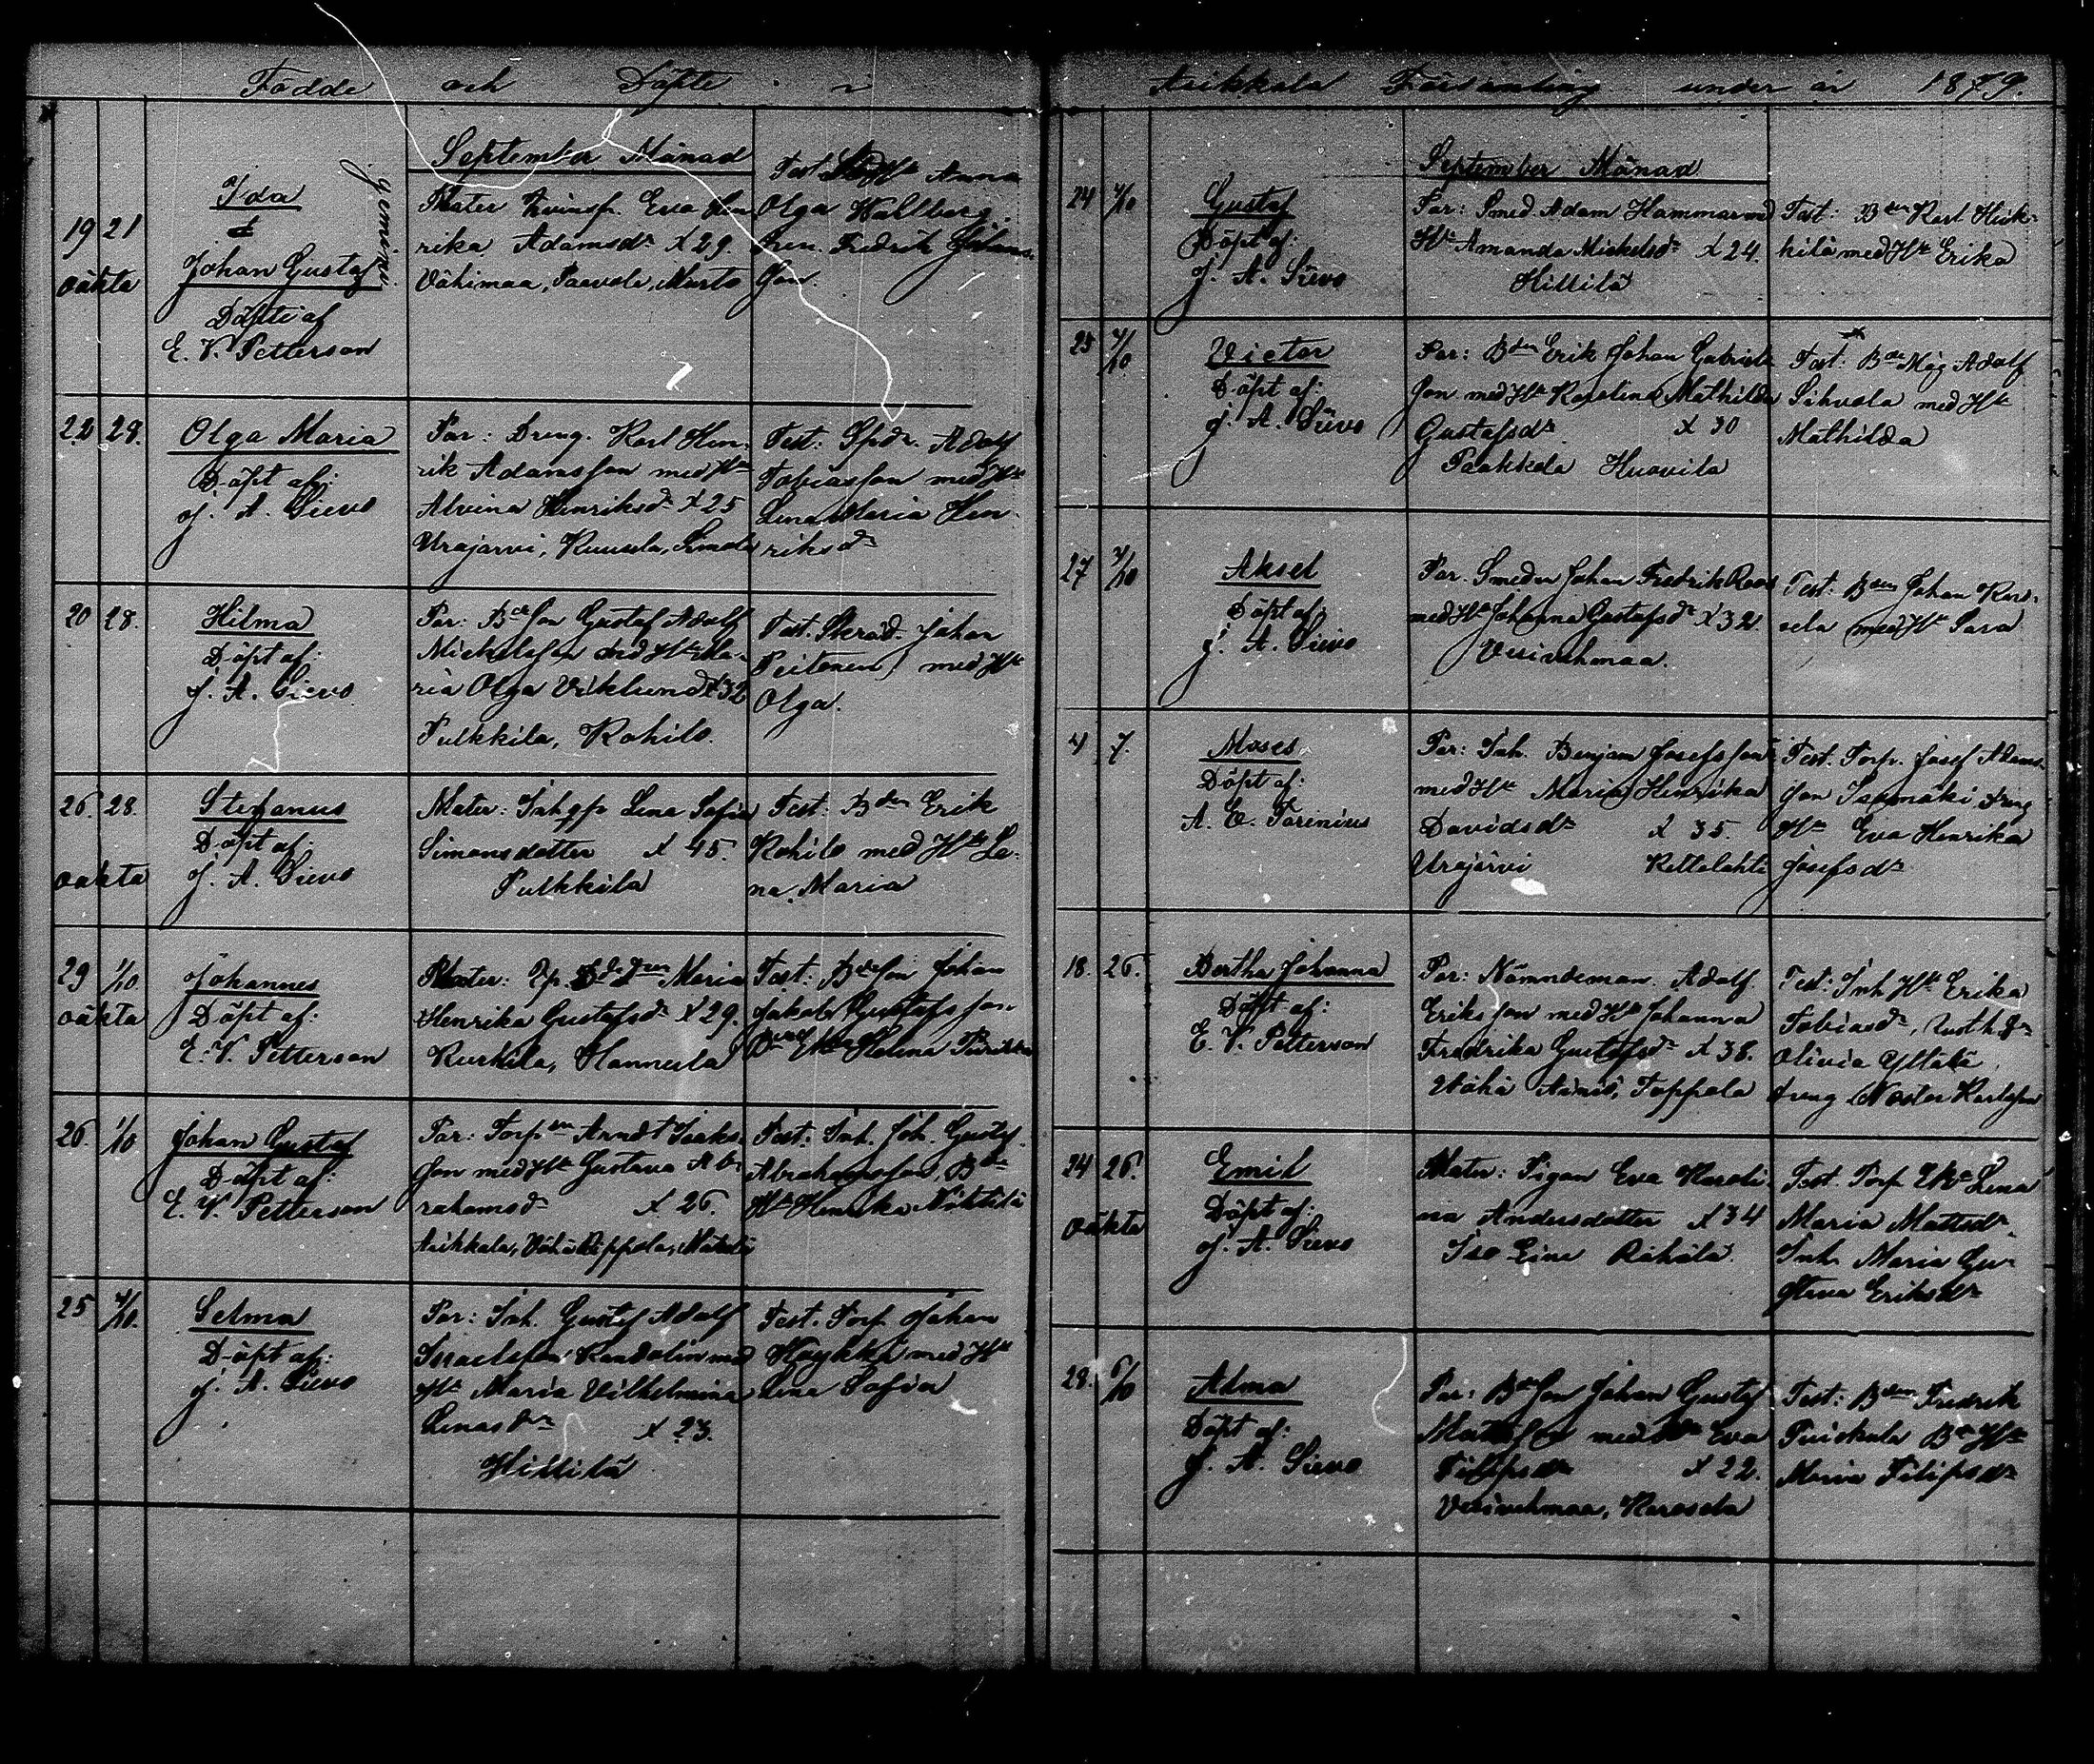 Födde och Döpte i
September Månad
19 21
oäkta
Ida
&
Johan Gustaf
gemini
Döpte af
E. V. Petterson
Mater Qvinsp. Eva Hen
rika Adamsdr X 29.
Vähimaa, Paavola, Murto
Test. Anna
Olga Wallberg.
Fredrik
son.
22 28.
Olga Maria
Döpt af:
J. A. Sievo
Par: Dreng. Karl Hen
rik Adamsson med Ht
Alvina Henriksdr X 25
Urajärvi, Kuusela, Simola
Test: Adolf
Tobiasson med Ht
Lena Maria Hen
riksdr
20 28.
Hilma
Döpt af:
J. A. Sievo.
Par: Bdeson Gustaf Adolf
Mickelsson med Ht Ma-
ria Olga Viklund X 32
Pulkkila, Rohilo.
Test. Skräd. Johan
Peitonen med Ht
Olga.
26. 28.
oäkta
Stefanus
Döpt af:
J. A. Sievo
Mater: Inhqp Lena Sofia
Simonsdotter X 45.
Pulkkila
Test: Bden Erik
Rohilo med Ht Le-
na Maria
29 1/10.
oäkta
Johannes
Döpt af:
E. V. Petterson
Mater: Maria
Henrika Gustafsdr X 29.
Kurkila, Hannula
Test: Bdeson Johan
Jakob Gustafsson
Helena
26. 1/10
Johan Gustaf
Döpt af:
E. V. Petterson
Par: Torpen Arndt Isaks
son med Ht Gustava Ab-
rahamsdr X 26.
Asikkala, Vähä Äippälä, Mattila
Test: Inh. Joh. Gustaf
Abrahamsson, Bde
Ht Henrika
25 4/10.
Selma
Döpt af:
J. A. Sievo
Par: Inh. Gustaf Adolf
Israelsson Randolin med
Ht Maria Vilhelmina
Enasdr X 23.
Hillilä
Test. Torp. Johan
Häykkä med Ht
Lena Sofia
Asikkala Församling under år 1879.
September Månad
24 4/10
Gustaf
Döpt af:
J. A. Sievo
Par: Smed. Adam Hammar med
Ht Amanda Mickelsdr X 24.
Hillilä
Test: Bden Karl Heik-
kilä med Ht Erika
25 4/10.
Victor
Döpt af:
J. A. Sievo
Par: Bden Erik Johan Gabriels
son med Ht Karolina Mathilda
Gustafsdr X 30
Paakkola Huovila
Test: Bde Måg Adolf
Sihvola med Ht
Mathilda
27 4/10
Aksel
Döpt af:
J. A. Sievo
Par. Smeden Johan Fredrik Roos
med Ht Johanna Gustafsdr X 32.
Vesivehmaa.
Test: Bden Johan Kar-
sela med Ht Sara
4 7.
Moses
Döpt af:
A. E. Forenius
Par: Inh. Benjam Josefsson
med Ht Maria Henrika
Davidsdr X 35.
Urajärvi Kettolahti
Test. Torp. Josef Adams-
son Isomäki Dreng
Ht Eva Henrika
Josefsdr
18. 26.
Bertha Johanna
Döpt af:
E. V. Petterson
Par: Nämndeman. Adolf
Eriksson med Ht Johanna
Fredrika Gustafsdr X 38.
Vähä Äiniö, Toppola
Test: Inh Ht Erika
Tobiasdr, Rusth.dr
Olivia Yltälä
Dreng Nestor Karlsson
24 26.
oäkta
Emil
Döpt af:
J. A. Sievo
Mater: Pigan Eva Karoli
na Andersdotter X 34
Iso Eine Rähälä.
Test. Torp Lena
Maria Mattsdr
Inh. Maria Gu-
stava Eriksdr
28. 6/10
Alma
Döpt af:
J. A. Sievo
Par: Bdeson Johan Gustaf
Mattsson med Ht Eva
Filipsdr X 22.
Vesivehmaa, Karsela
Test: Bden Fredrik
Puiskala Bde Ht
Maria Filipsdr